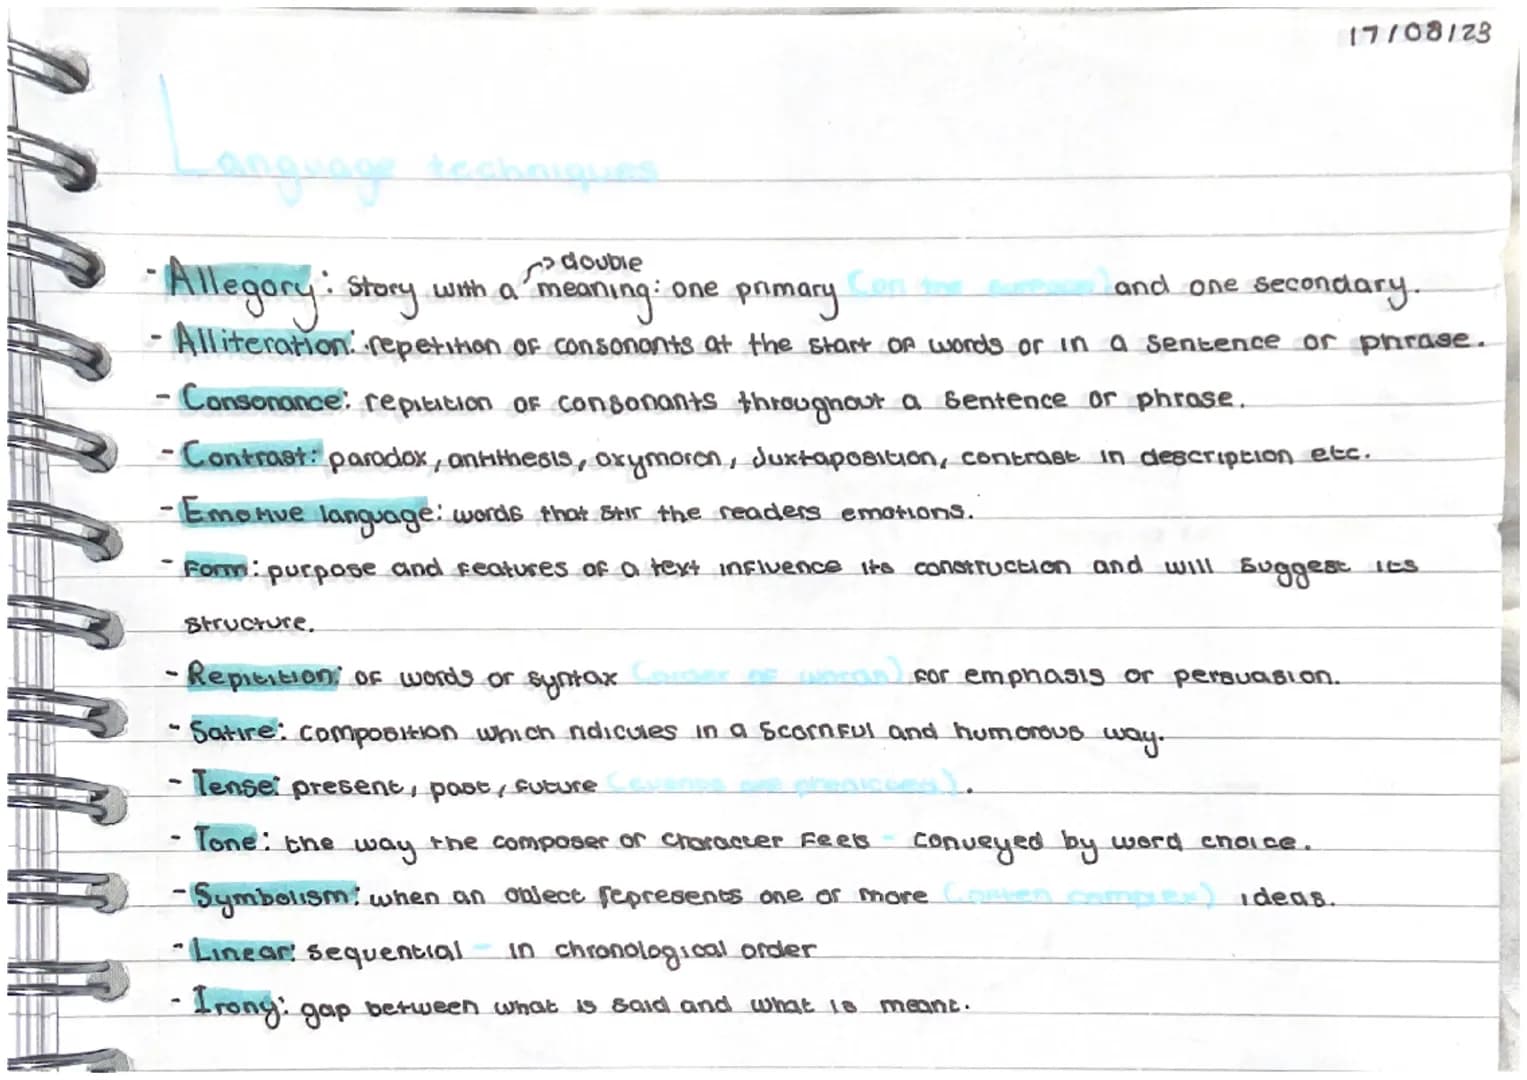 17/08/23
Language techniques
double
- Allegory: Story with a meaning: one primary (on the surface) and one secondary.
- Alliteration: repetition of consonants at the start of words or in a sentence or phrase.
- Consonance: repitition of consonants throughout a sentence or phrase.
- Contrast: paradox, antithesis, oxymoron, Juxtaposition, contrast in description etc.
- Emotive language: words that stir the readers emotions.
- Form: purpose and features of a text influence its construction and will suggest its
structure.
- Repitition: of words or syntax (order of words) for emphasis or persuasion.
- Satire: composition which ridicules in a scornful and humorous way.
- Tense: present, past, future (events are).
- Tone: the way the composer or character feels - conveyed by word choice.
- Symbolism: when an object represents one or more (often complex) ideas.
- Linear: sequential - in chronological order
- Irony: gap between what is said and what is meant.